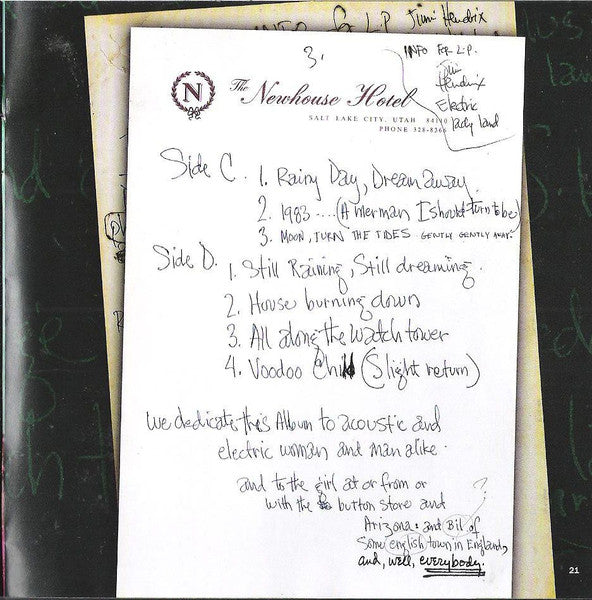 INFO for L.P. Jimi Hendrix
3.
INFO FOR L.P.
Jimi
Hendrix
Electric
Lady land
N
The Newhouse Hotel
SALT LAKE CITY, UTAH 84110
PHONE 328-8366
Side C. 1. Rainy Day, Dream away.
2. 1983.... (A merman I should turn to be)
3. MOON, TURN THE TIDES GENTLY GENTLY AWAY.
Side D. 1. Still Raining, Still dreaming.
2. House burning down
3. All along the Watch tower
4. Voodoo Child (Slight return)
We dedicate this Album to acoustic and
electric woman and man alike.
and to the girl at or from or
with the button store and
?
Arizona: and Bil of
Some english town in England,
and, well, everybody.
21